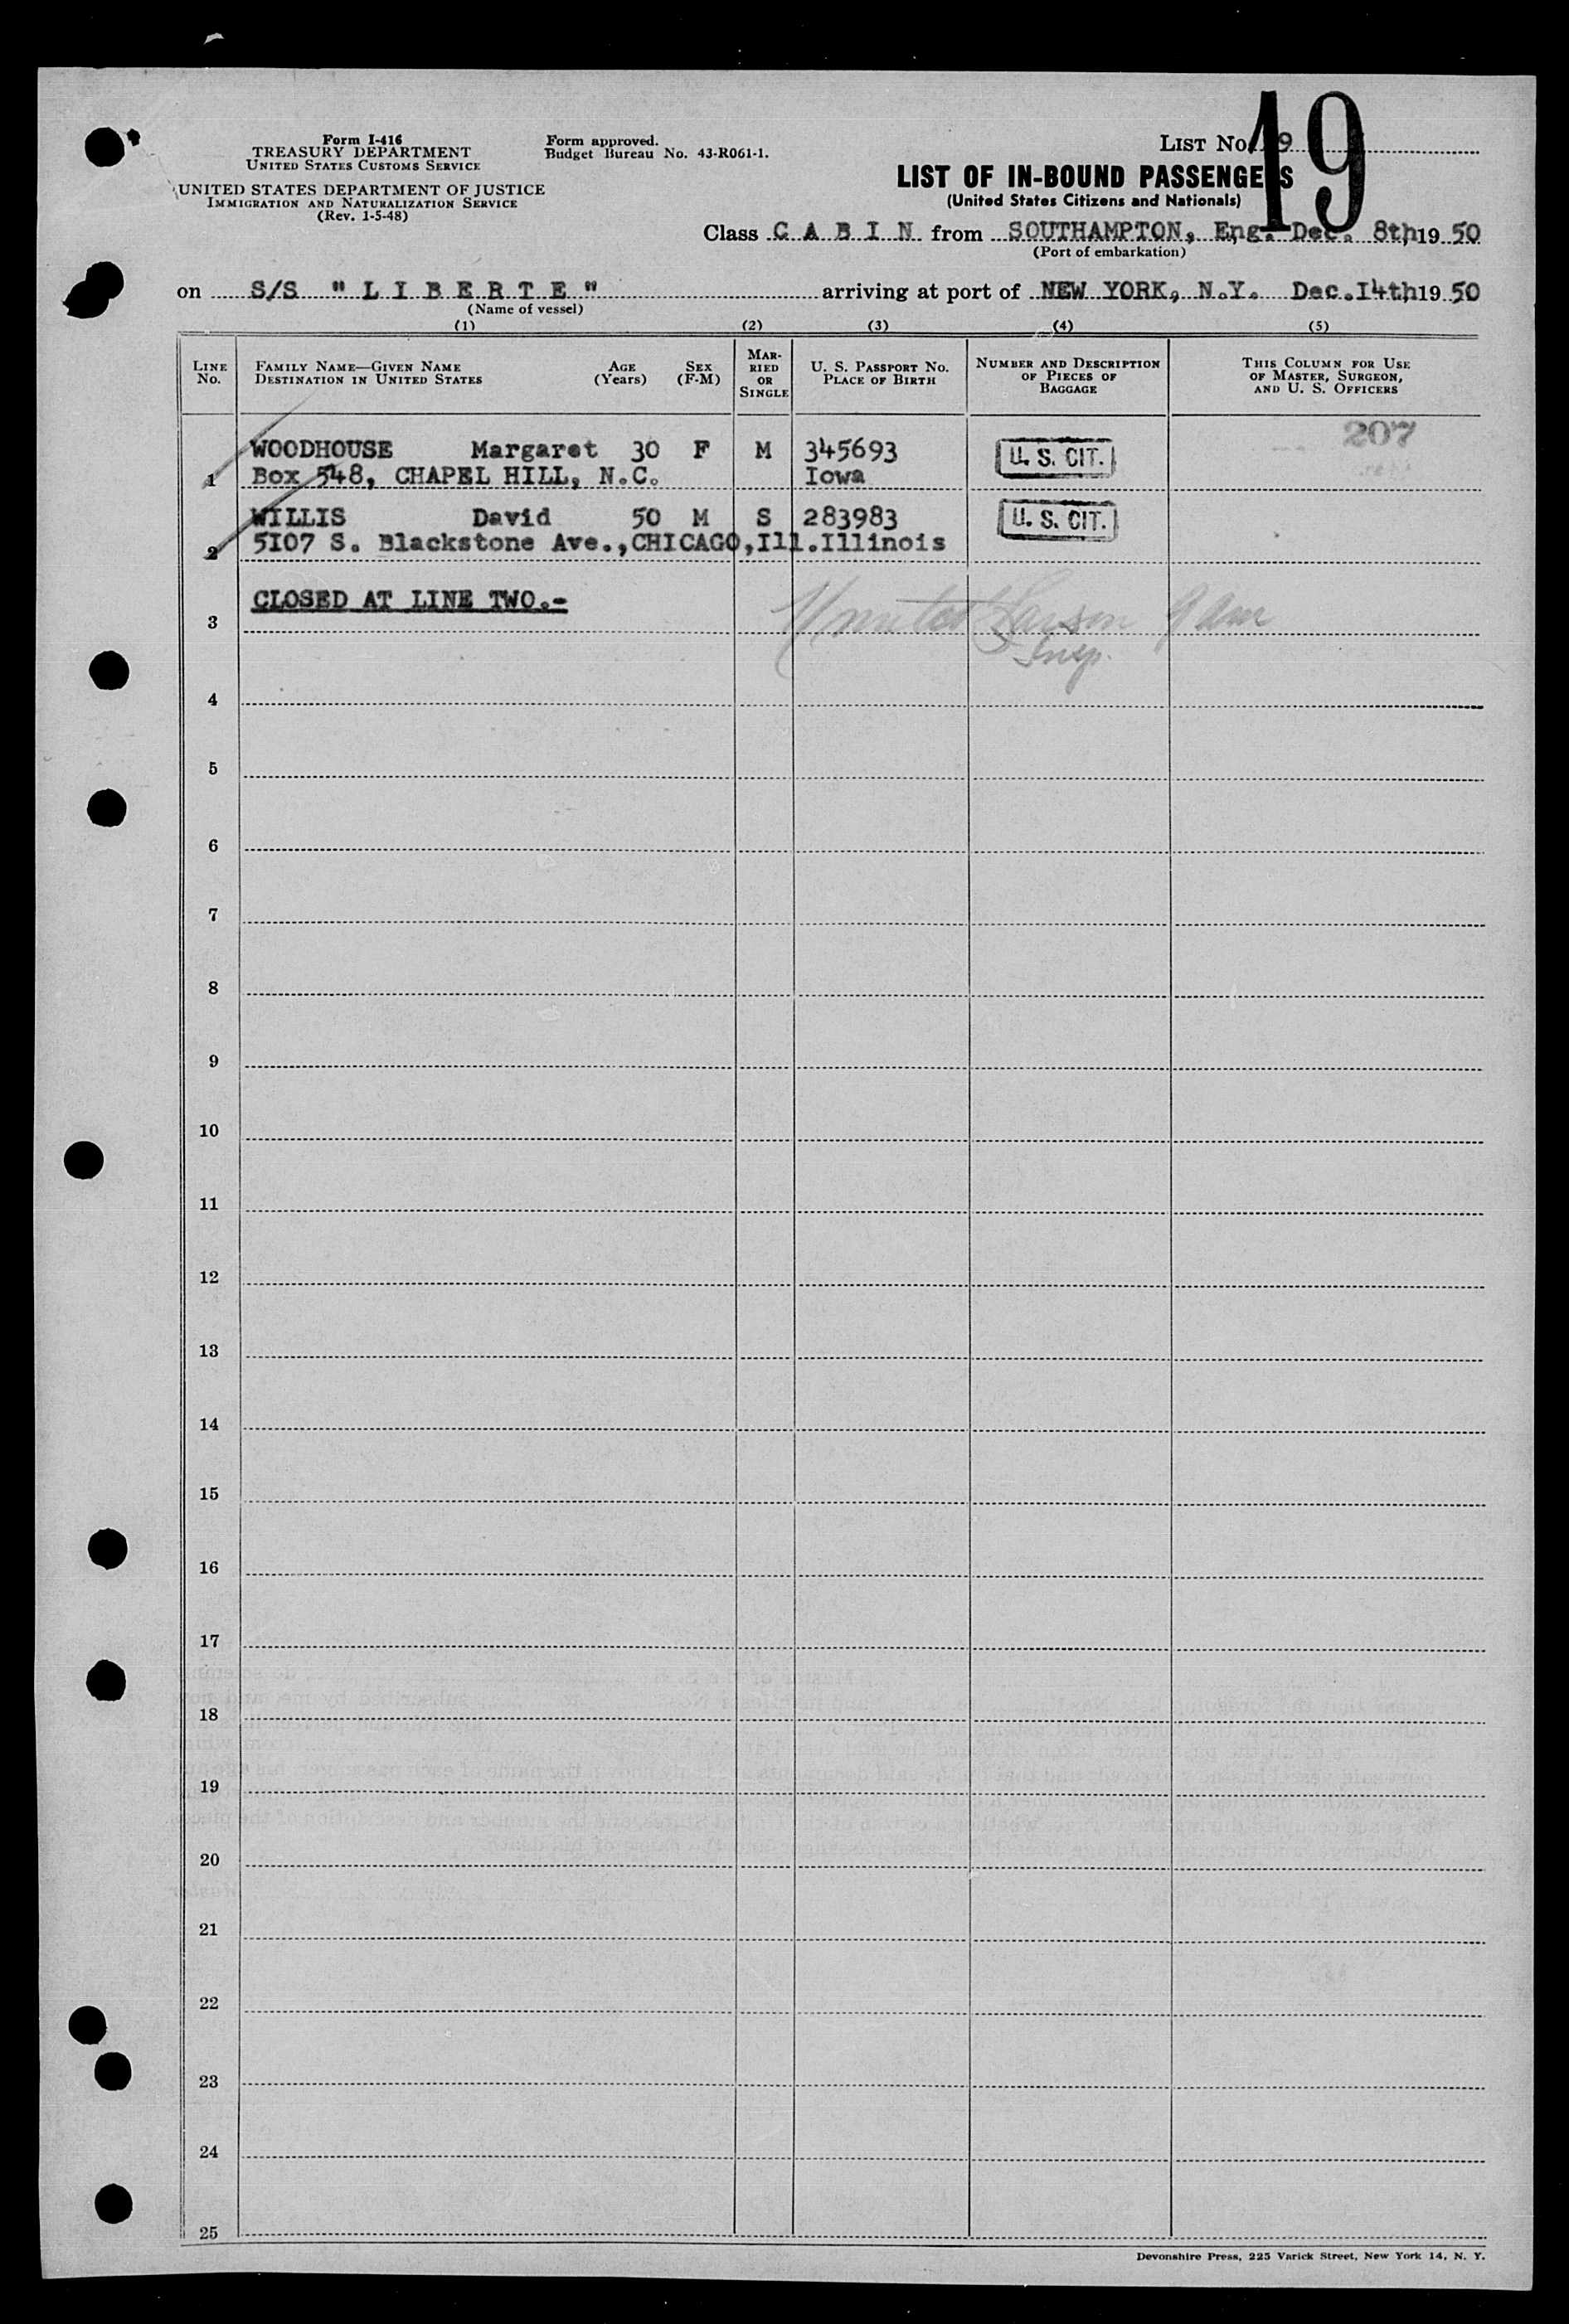 Form I-416
TREASURY DEPARTMENT
UNITED STATES CUSTOMS SERVICE
UNITED STATES DEPARTMENT OF JUSTICE
IMMIGRATION AND NATURALIZATION SERVICE
(Rev. 1-5-48)
Form approved.
Budget Bureau No. 43-R061-1.
LIST No. 19
19
LIST OF IN-BOUND PASSENGERS
(United States Citizens and Nationals)
Class C A B I N from SOUTHAMPTON, Eng. Dec. 8th, 19 50
(Port of embarkation)
on S/S "L I B E R T E" arriving at port of NEW YORK, N.Y. Dec.I4th, 19 50
(Name of vessel)
(1) (2) (3) (4) (5)
LINE No.
FAMILY NAME—GIVEN NAME
DESTINATION IN UNITED STATES
AGE (Years)
SEX (F-M)
MARRIED OR SINGLE
U. S. PASSPORT No.
PLACE OF BIRTH
NUMBER AND DESCRIPTION OF PIECES OF BAGGAGE
THIS COLUMN FOR USE OF MASTER, SURGEON, AND U. S. OFFICERS
207
WOODHOUSE Margaret 30 F M 345693 U. S. CIT.
1 Box 548, CHAPEL HILL, N.C. Iowa
WILLIS David 50 M S 283983 U. S. CIT.
2 5I07 S. Blackstone Ave.,CHICAGO,Ill.Illinois
CLOSED AT LINE TWO.-
3
Insp.
4
5
6
7
8
9
10
11
12
13
14
15
16
17
18
19
20
21
22
23
24
25
Devonshire Press, 225 Varick Street, New York 14, N. Y.